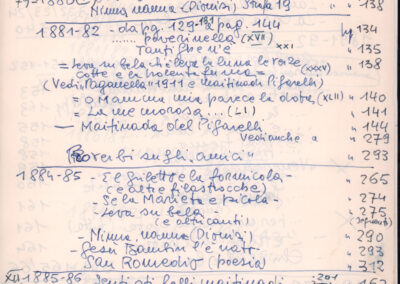 Ninna nanna (Dionisi) Strofa 19 " 138
1881-82 - da pg. 129 - a pag. 144
...... poverinella (XVII) pg 134
Tanti ghe n'è XXI " 135
= Leva su bela che leva la luna le verze (XXXV) " 138
cotte e la polenta fuma =
(Vedi "Paganella" 1911 e maitinada Pigarelli)
= O Mamma mia parecè la dota, (XLII) " 140
= La me morosa ... (LI) " 141
— Maitinada del Pigarelli " 144
Vedi anche a " 279
Proverbi sugli "amici" " 293
1884-85 - El griletto e la formicola - " 265
(e altre filastrocche)
- Se la Marieta è picola - " 274
- Leva su bela - " 275
(e altri canti) (seguenti)
- Ninna nanna (Dionisi) " 290
- Gesù Bambin l'è nato - " 293
San Romedio (poesia) " 312
XII 1885-86